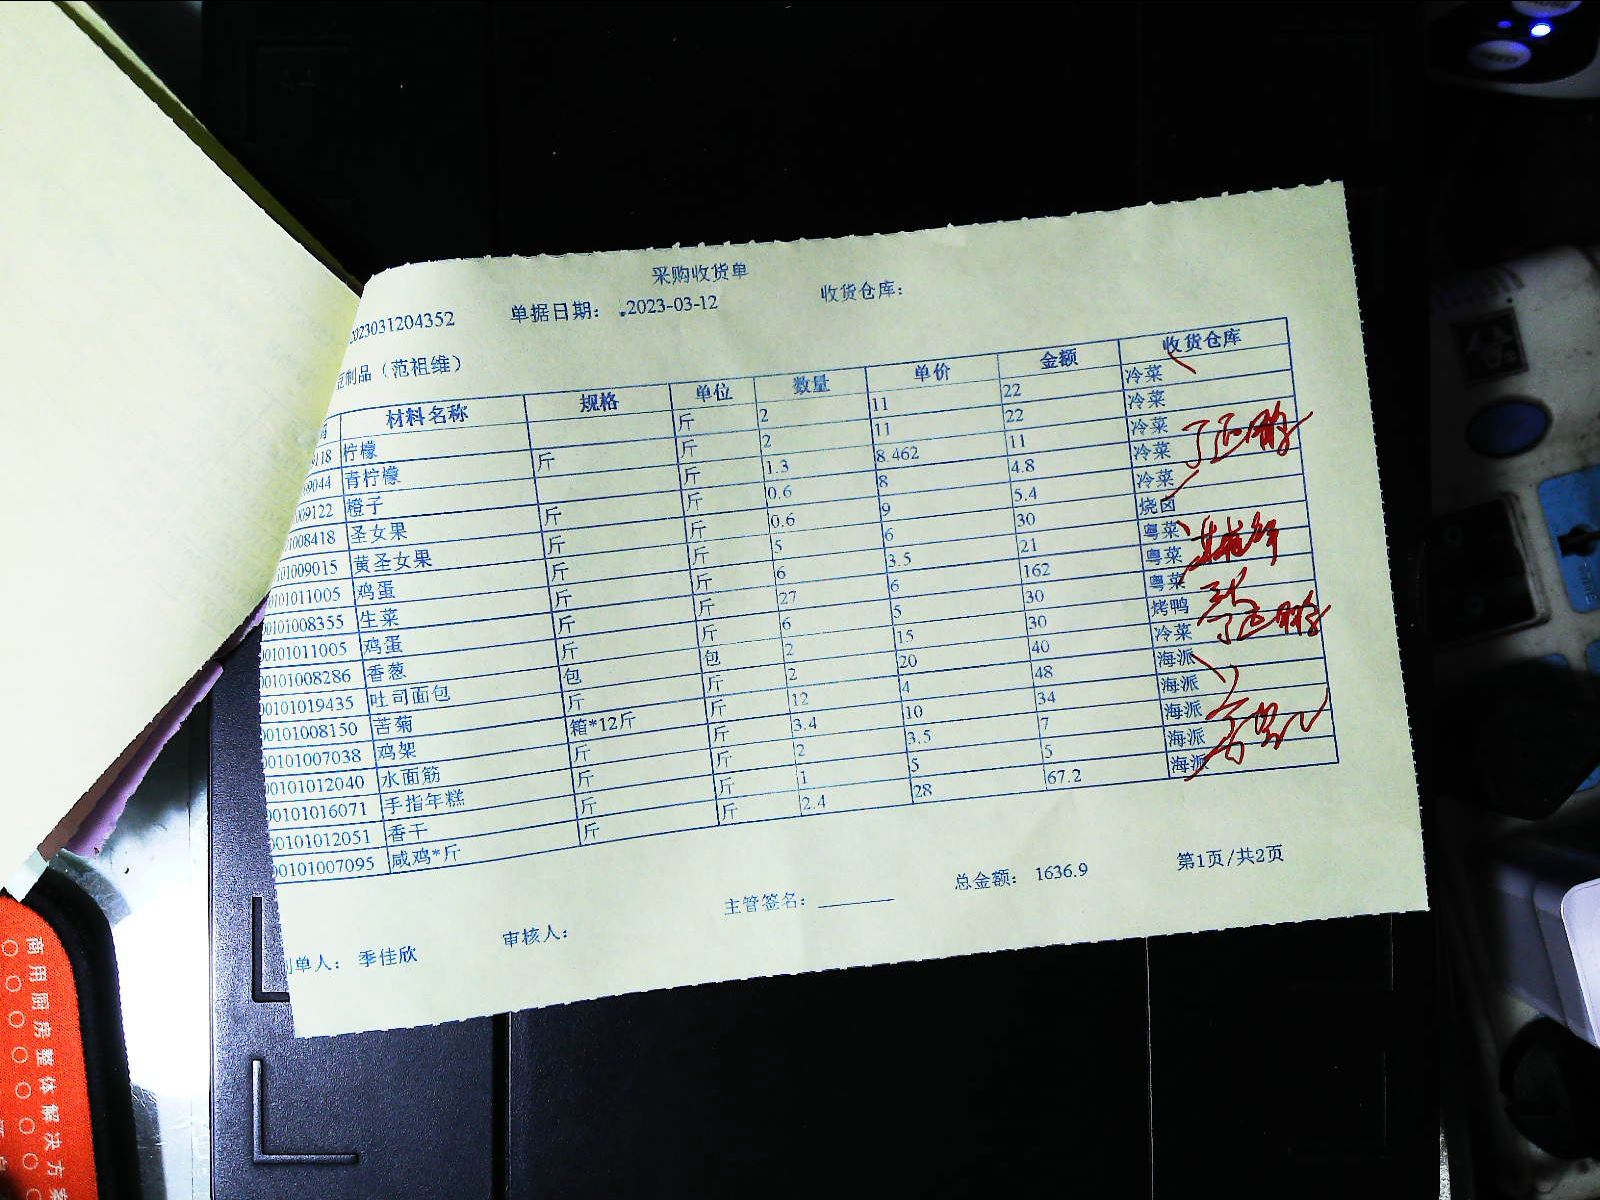 采购收货单
2023031204352 单据日期: 2023-03-12 收货仓库:
豆制品（范祖维）
材料名称 规格 单位 数量 单价 金额 收货仓库
118 柠檬 斤 2 11 22 冷菜
9044 青柠檬 斤 斤 2 11 22 冷菜
009122 橙子 斤 1.3 8.462 11 冷菜
01008418 圣女果 斤 斤 0.6 8 4.8 冷菜
0101009015 黄圣女果 斤 斤 0.6 9 5.4 冷菜
0101011005 鸡蛋 斤 斤 5 6 30 烧卤
00101008355 生菜 斤 斤 6 3.5 21 粤菜
00101011005 鸡蛋 斤 斤 27 6 162 粤菜
00101008286 香葱 斤 斤 6 5 30 粤菜
00101019435 吐司面包 包 包 2 15 30 烤鸭
00101008150 苦菊 斤 斤 2 20 40 冷菜
00101007038 鸡架 箱*12斤 斤 12 4 48 海派
00101012040 水面筋 斤 斤 3.4 10 34 海派
00101016071 手指年糕 斤 斤 2 3.5 7 海派
00101012051 香干 斤 斤 1 5 5 海派
00101007095 咸鸡*斤 斤 斤 2.4 28 67.2 海派
主管签名: 总金额: 1636.9 第1页/共2页
制单人: 季佳欣 审核人:
商用厨房整体解决方案